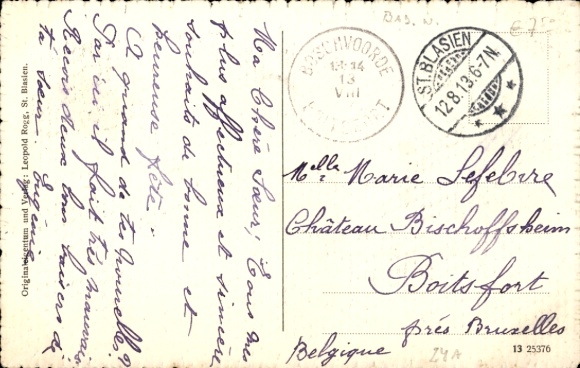 Ma Chère Sœur, Tous mes
plus affectueux et sincère
souhaits de bonne et
heureuse fête.
A quand de tes nouvelles?
Par ici il fait très mauvais
Reçois deux bons baisers de
ta sœur. Eugénie
Originaleigentum und Verlag: Leopold Rogg, St. Blasien.
BOSCHVOORDE
13-14
13
VIII
BOITSFORT
ST. BLASIEN
12.8.13.6-7N.
€ 7
Melle Marie Lefebvre
Château Bischoffsheim
Boitsfort
près Bruxelles
Belgique
24A
13 25376